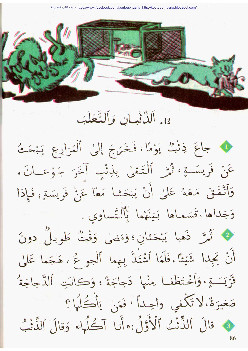 12. اَلذِّئْبَانِ وَالثَّعْلَبُ
1 جَاعَ ذِئْبٌ يَوْمًا، فَخَرَجَ إِلَى الْمَزَارِعِ يَبْحَثُ
عَنْ فَرِيسَةٍ، ثُمَّ الْتَقَى بِذِئْبٍ آخَرَ جَوْعَانَ،
وَاتَّفَقَ مَعَهُ عَلَى أَنْ يَبْحَثَا مَعًا عَنْ فَرِيسَةٍ، فَإِذَا
وَجَدَاهَا، قَسَمَاهَا بَيْنَهُمَا بِالتَّسَاوِي.
2 ثُمَّ ذَهَبَا يَبْحَثَانِ، وَمَضَى وَقْتٌ طَوِيلٌ دُونَ
أَنْ يَجِدَا شَيْئًا، فَلَمَّا اشْتَدَّ بِهِمَا الْجُوعُ، هَجَمَا عَلَى
قَرْيَةٍ، وَاخْتَطَفَا مِنْهَا دَجَاجَةً، وَكَانَتِ الدَّجَاجَةُ
صَغِيرَةً، لَا تَكْفِي وَاحِدًا، فَمَنْ يَأْكُلُهَا؟
3 قَالَ الذِّئْبُ الْأَوَّلُ: «أَنَا آكُلُهَا» وَقَالَ الذِّئْبُ
86